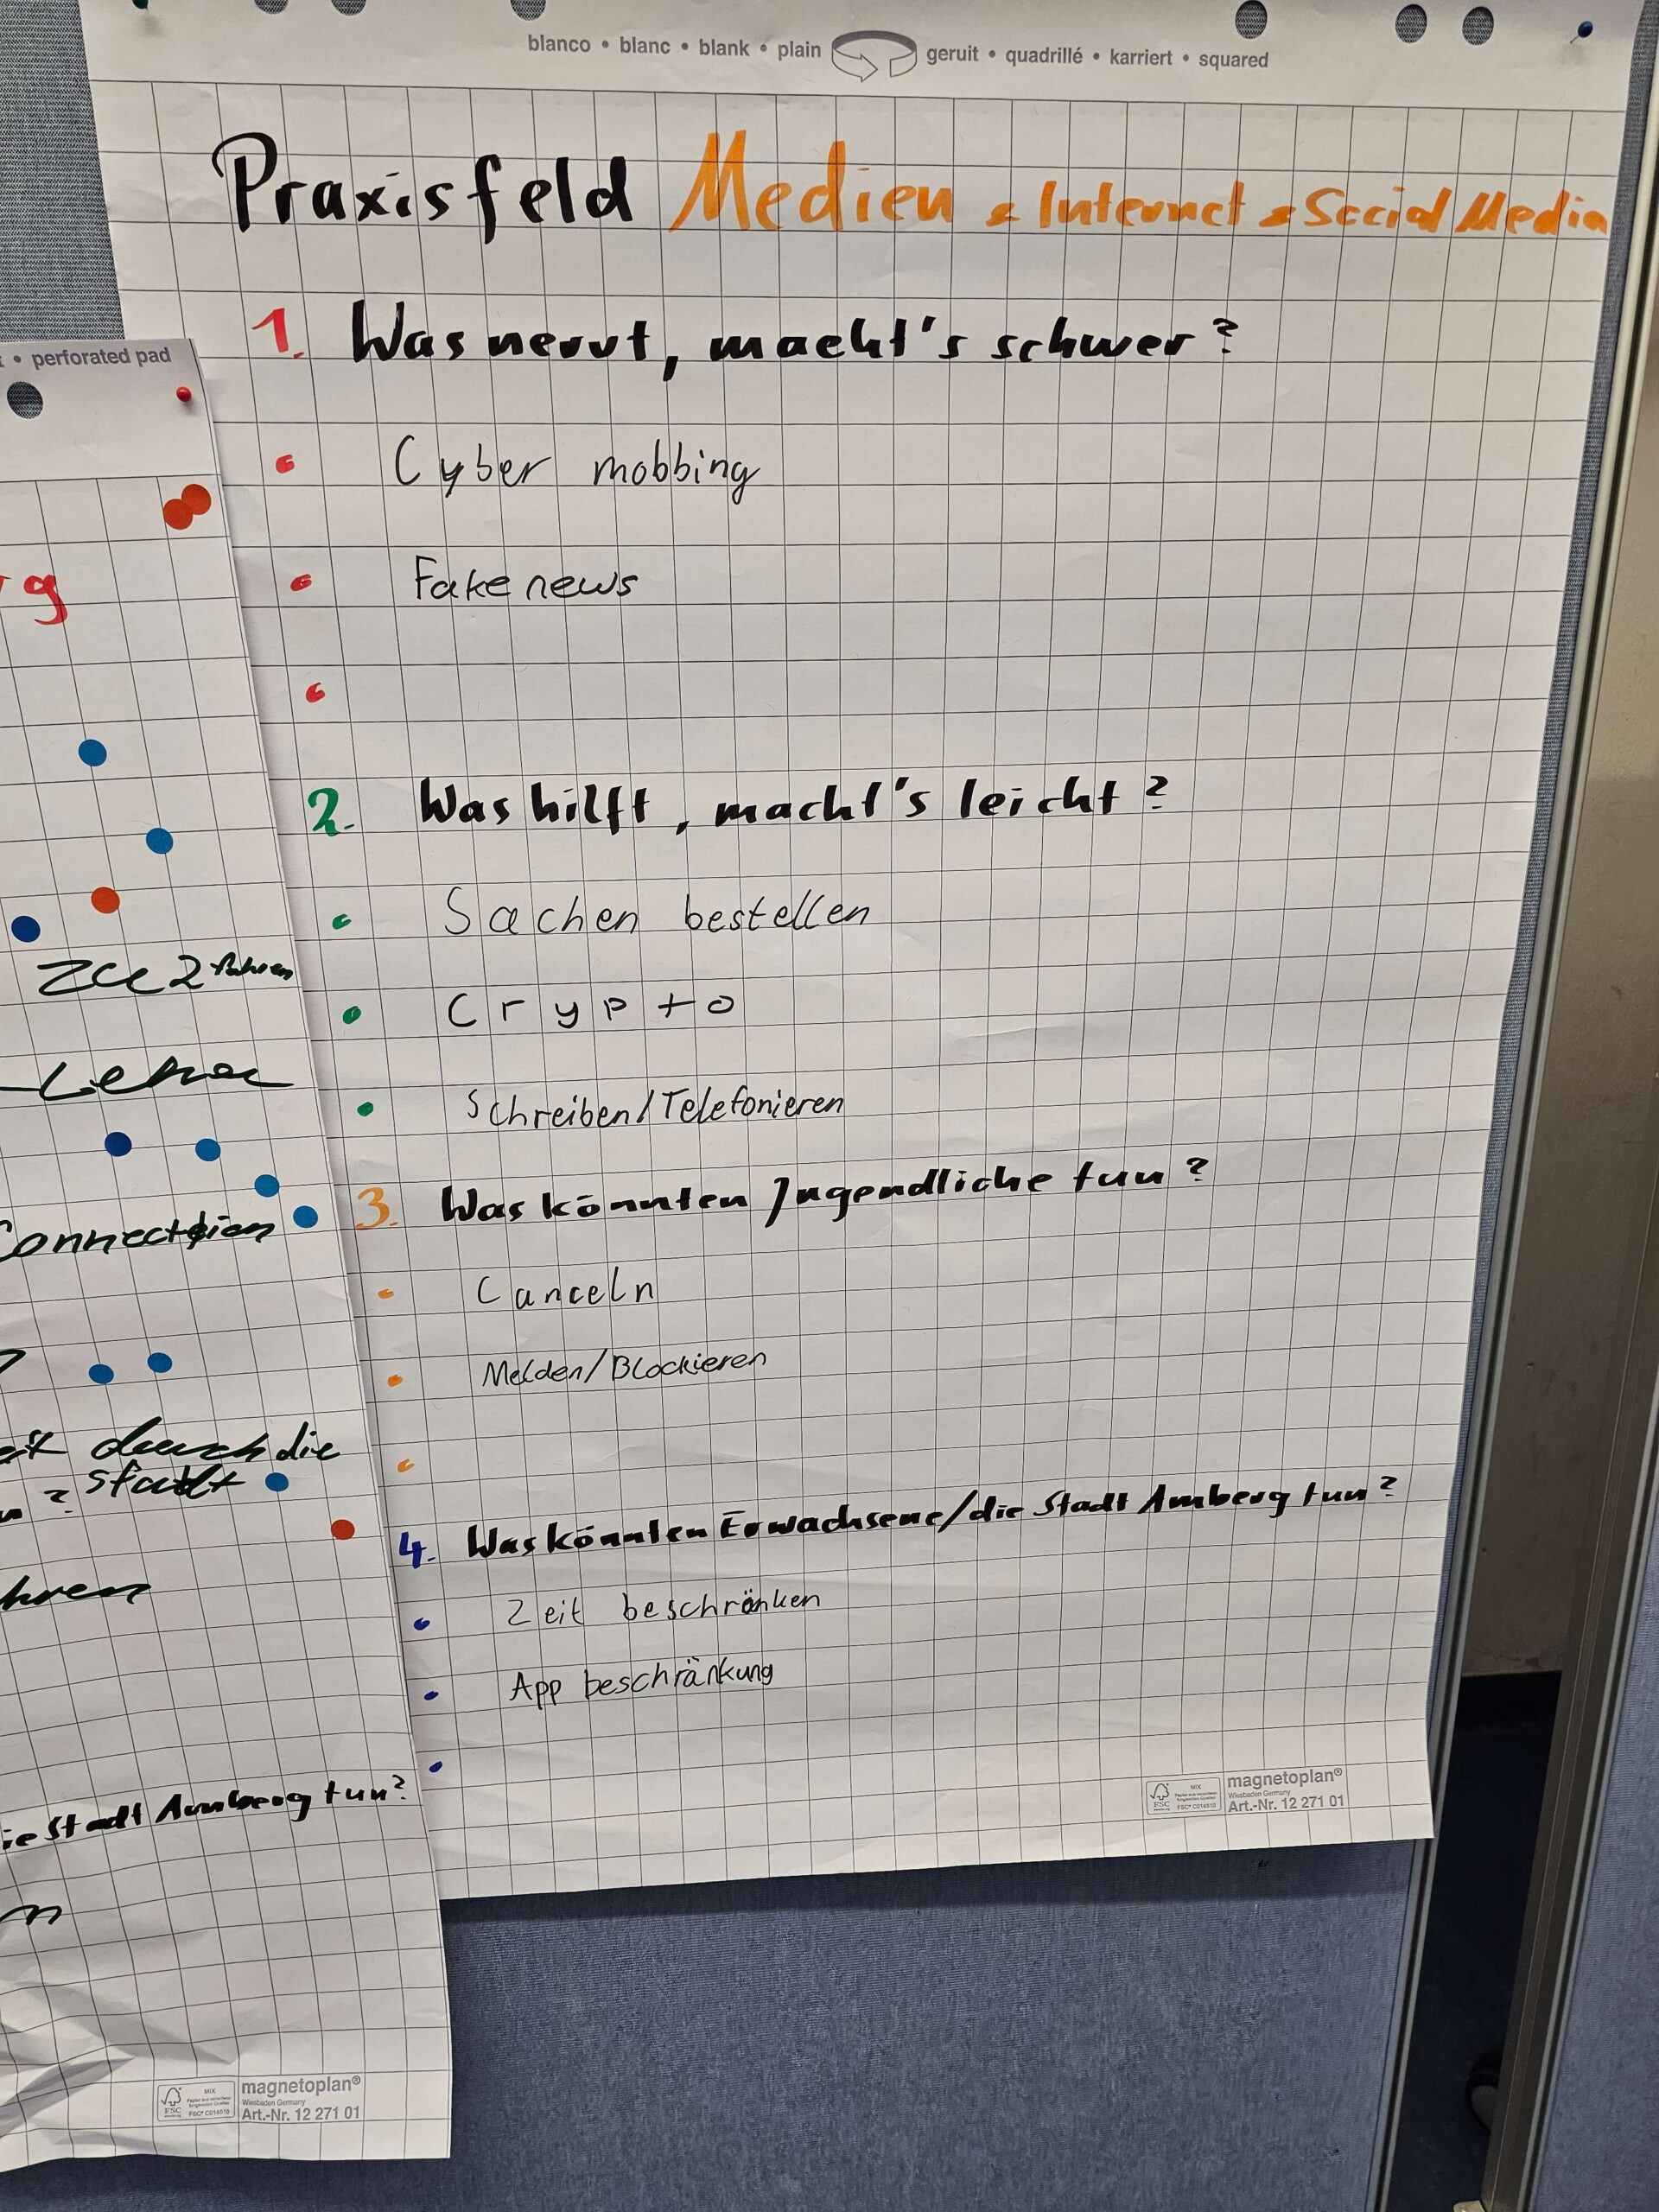 blanco • blanc • blank • plain geruit • quadrillé • karriert • squared
Praxisfeld Medien & Internet & Social Media
1. Was nervt, macht's schwer?
• Cyber mobbing
• Fake news
•
2. Was hilft, macht's leicht?
• Sachen bestellen
• Crypto
• Schreiben/Telefonieren
3. Was könnten Jugendliche tun?
• Canceln
• Melden/Blockieren
•
4. Was könnten Erwachsene/die Stadt Amberg tun?
• Zeit beschränken
• App beschränkung
•
FSC
MIX
FSC® C014510
magnetoplan®
Wiesbaden Germany
Art.-Nr. 12 271 01
• perforated pad
g
zu 2
durch die
Stadt
hren
ie Stadt Amberg tun?
FSC
MIX
FSC® C014510
magnetoplan®
Wiesbaden Germany
Art.-Nr. 12 271 01